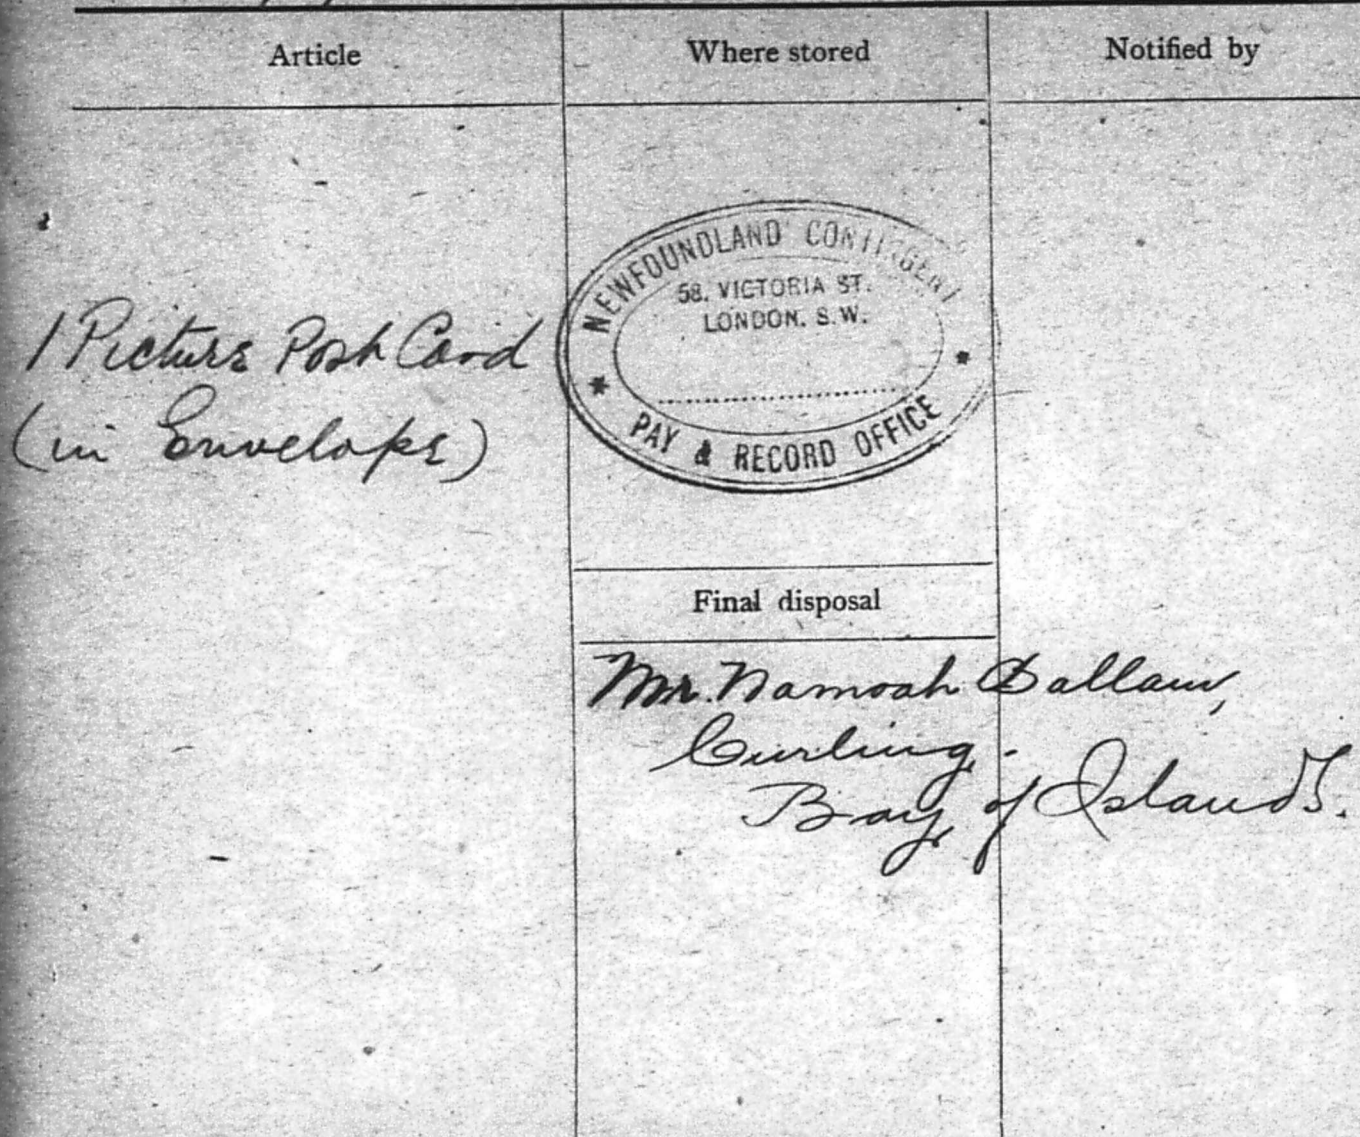 Article
Where stored
Notified by
1 Picture Post Card
(in Envelope)
NEWFOUNDLAND CONTINGENT
58, VICTORIA ST.
LONDON, S.W.
* PAY & RECORD OFFICE *
Final disposal
Mr. Namoah Ballam,
Curling.
Bay of Islands.